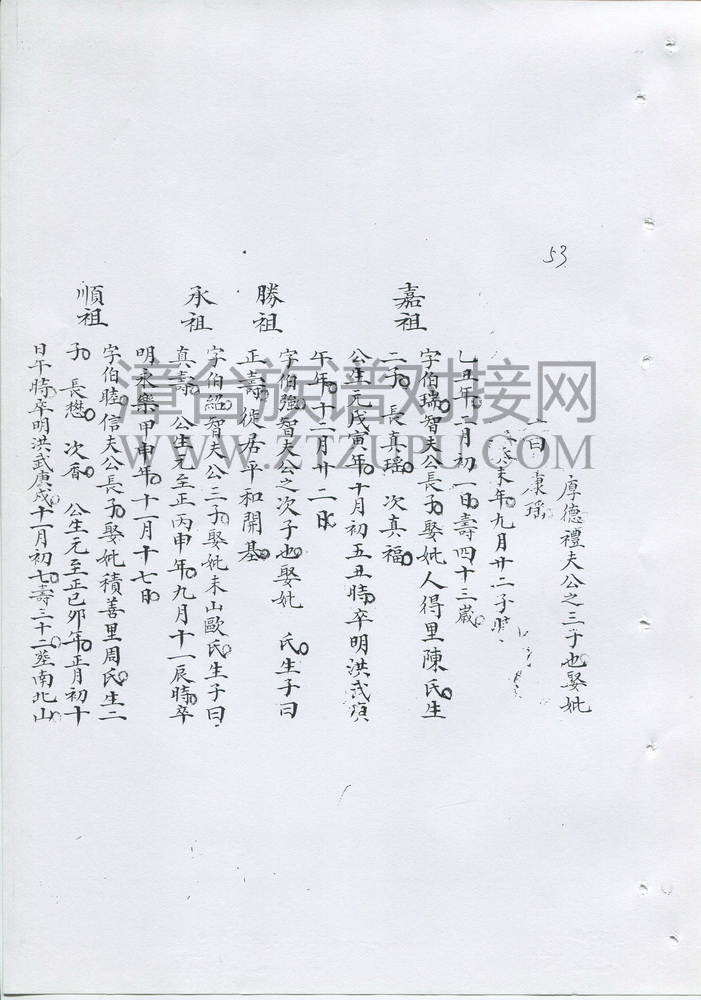 53
厚德禮夫公之三子也娶妣
曰康瑤
未年九月廿二子時
乙丑年二月初一日壽四十三歲
嘉祖
字伯瑞智夫公長子娶妣人得里陳氏生
二子長真瑤 次真福
公生元戊寅年十月初五丑時卒明洪武
午年十二月廿二日
勝祖
字伯強智夫公之次子也娶妣 氏生子曰
正壽 徙居平和開基
承祖
字伯紹智夫公三子娶妣未山歐氏生子曰
真壽 公生元至正丙申年九月十一辰時卒
明永樂甲申年十一月十七日
順祖
字伯睦信夫公長子娶妣積善里周氏生二
子 長懋 次香 公生元至正己卯年正月初十
日午時卒明洪武庚戌十一月初七壽三十二塟南北山
漳台族谱对接网
WWW.ZTZUPU.COM